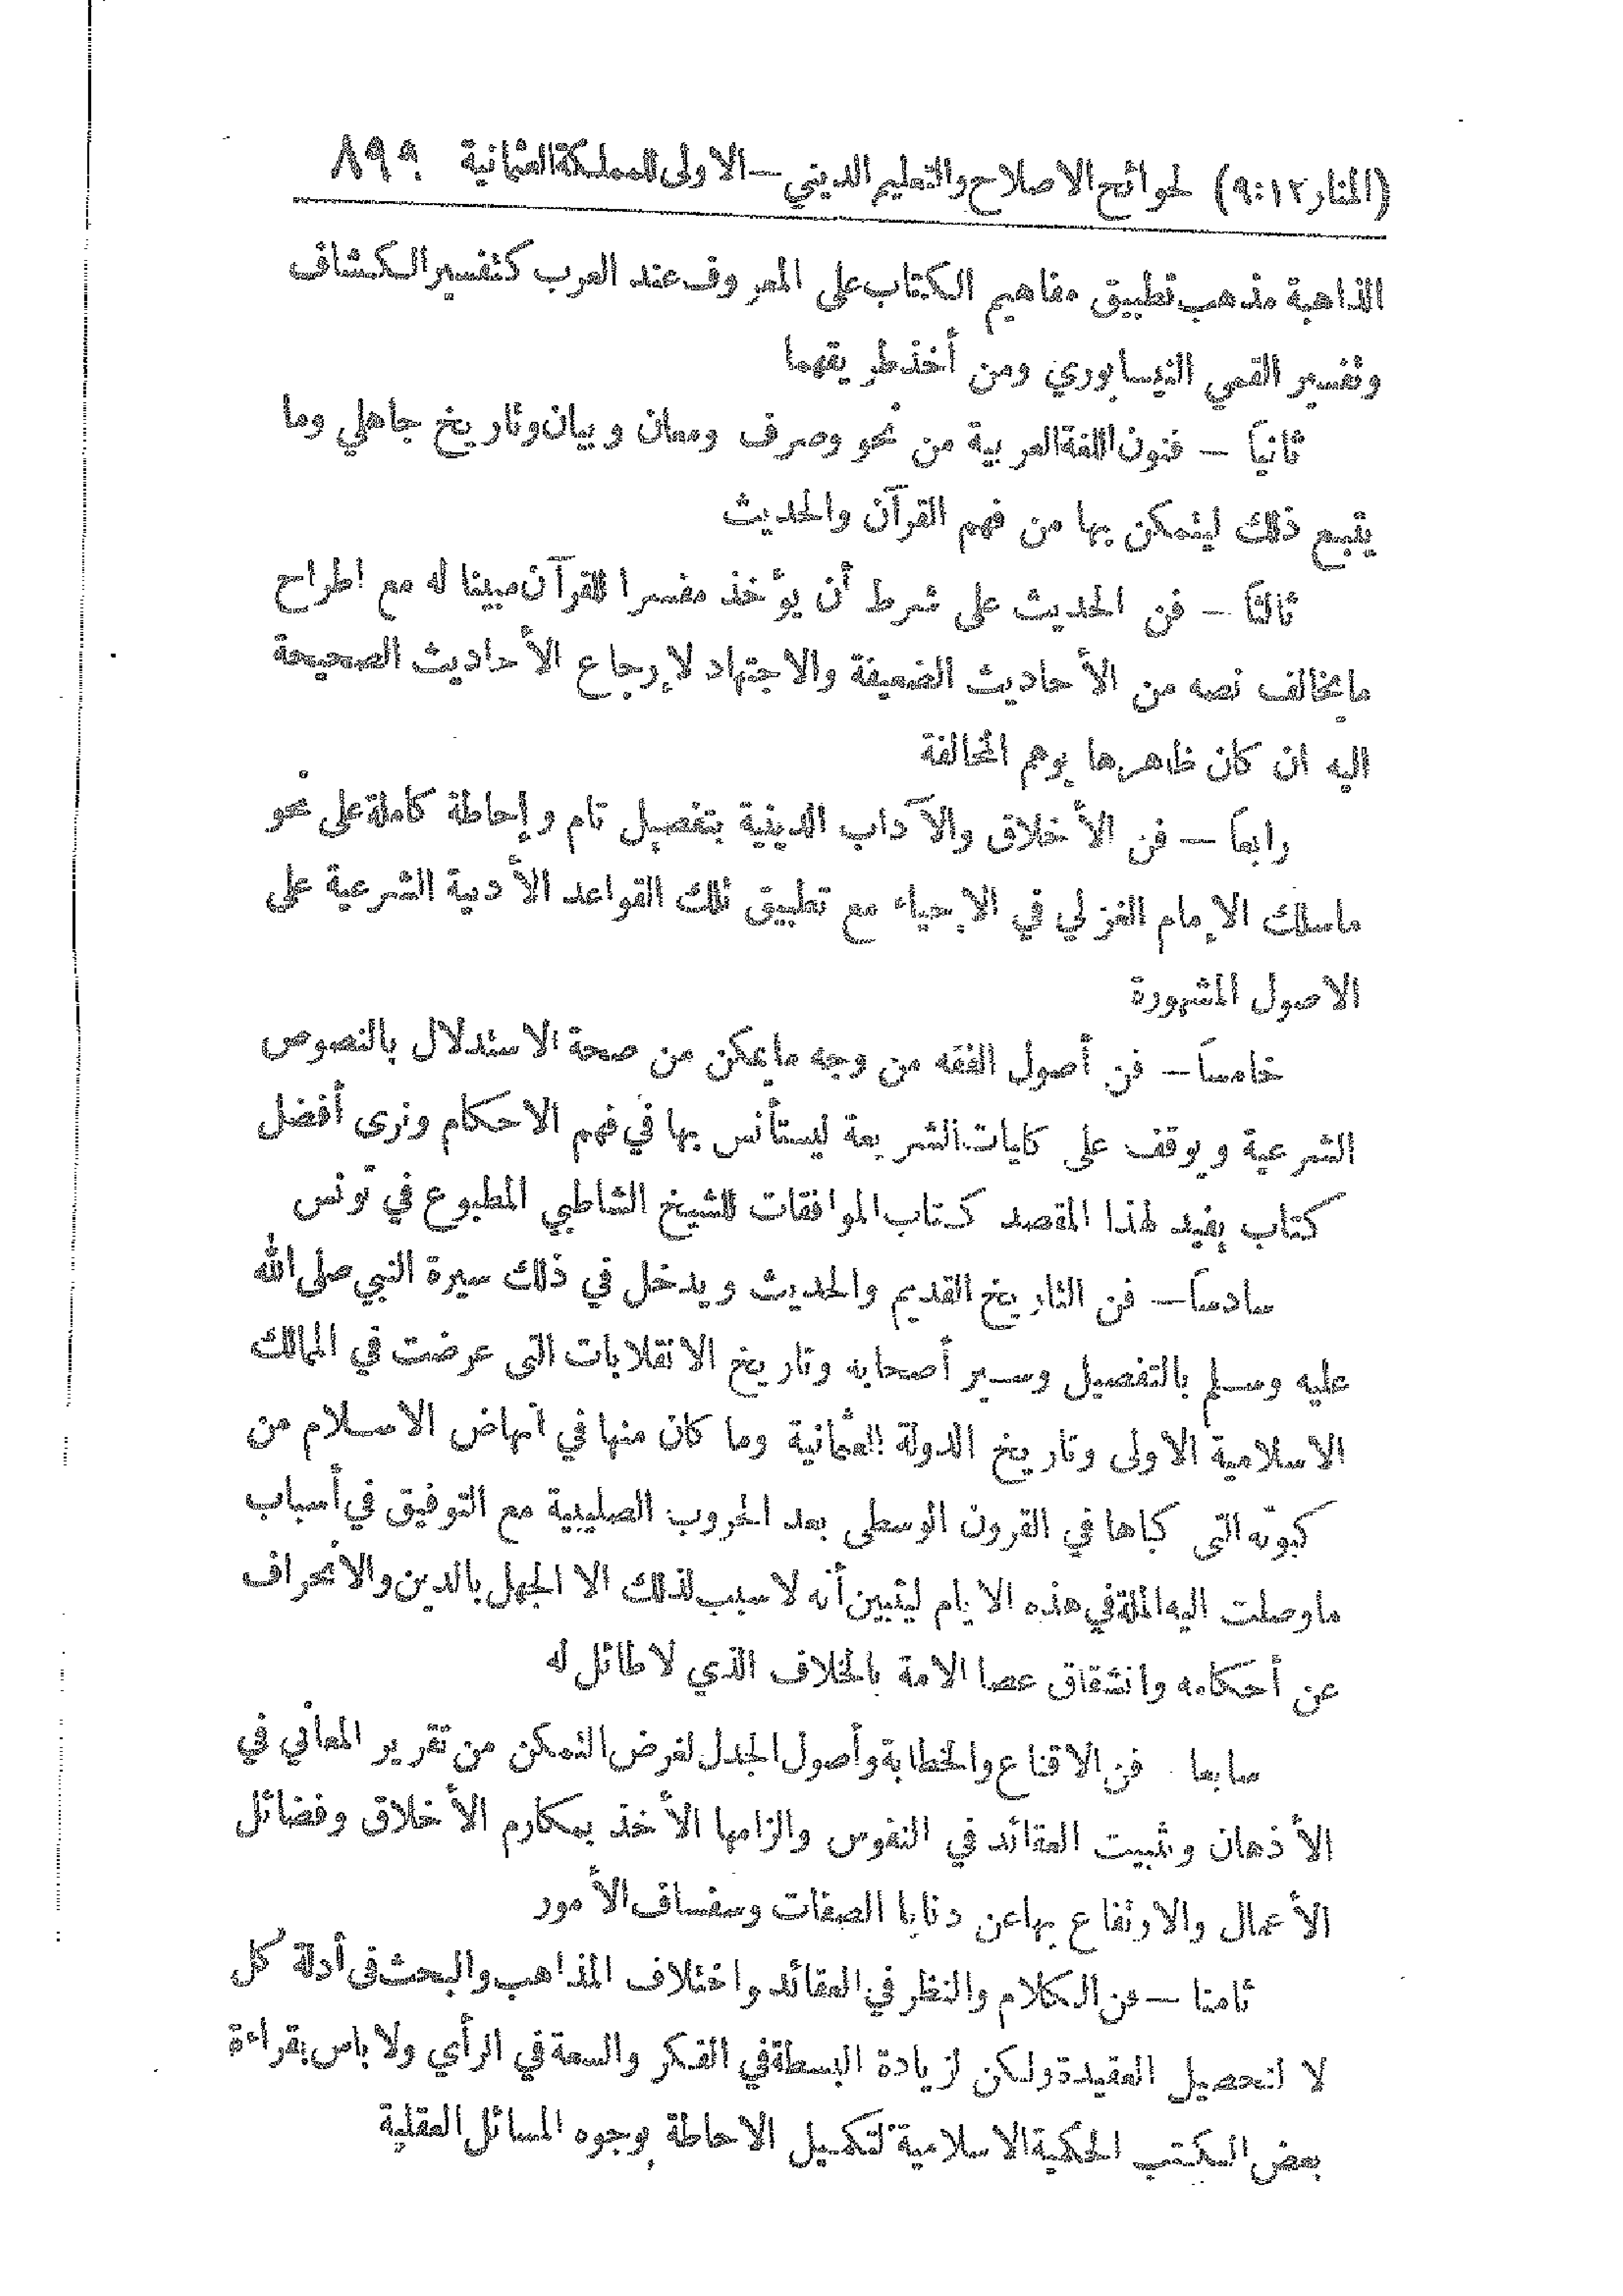 (المنار ١٢:٩) لحوائح الاصلاح والتعليم الديني — الاولى للمملكة العثمانية ٨٩٩
الذاهبة مذهب تطبيق مفاهيم الكتاب على المعروف عند العرب كتفسير الكشاف
وتفسير القمي النيسابوري ومن أخذ طريقهما
ثانياً — فنون اللغة العربية من نحو وصرف ومعان وبيان وتاريخ جاهلي وما
يتبع ذلك ليتمكن بها من فهم القرآن والحديث
ثالثاً — فن الحديث على شرط أن يؤخذ مفسرا للقرآن مبينا له مع اطراح
ما يخالف نصه من الأحاديث الضعيفة والاجتهاد لإرجاع الأحاديث الصحيحة
اليه ان كان ظاهرها يوهم المخالفة
رابعاً — فن الأخلاق والآداب الدينية بتفصيل تام وإحاطة كاملة على نحو
ماسلك الإمام الغزلي في الإحياء مع تطبيق تلك القواعد الأدبية الشرعية على
الاصول المشهورة
خامساً — فن أصول الفقه من وجه ما يمكن من صحة الاستدلال بالنصوص
الشرعية ويوقف على كليات الشريعة ليستأنس بها في فهم الاحكام ونرى أفضل
كتاب يفيد لهذا المقصد كتاب الموافقات للشيخ الشاطبي المطبوع في تونس
سادساً — فن التاريخ القديم والحديث ويدخل في ذلك سيرة النبي صلى الله
عليه وسلم بالتفصيل وسير أصحابه وتاريخ الانقلابات التى عرضت في الممالك
الاسلامية الاولى وتاريخ الدولة العثمانية وما كان منها في انهاض الاسلام من
كبوته التى كباها في القرون الوسطى بعد الحروب الصليبية مع التوفيق في أسباب
ماوصلت اليه الملة في هذه الايام ليتبين أنه لا سبب لذلك الا الجهل بالدين والانحراف
عن أحكامه وانشقاق عصا الامة بالخلاف الذي لا طائل له
سابعا فن الاقناع والخطابة وأصول الجدل لغرض التمكن من تقرير المعاني في
الأذهان وتثبيت العقائد في النفوس والزامها الأخذ بمكارم الأخلاق وفضائل
الأعمال والارتفاع بها عن دنايا الصفات وسفساف الأمور
ثامنا — فن الكلام والنظر في العقائد واختلاف المذاهب والبحث في أدلة كل
لا لتحصيل العقيدة ولكن لزيادة البسطة في الفكر والسعة في الرأي ولا باس بقراءة
بعض الكتب الحكمية الاسلامية لتكميل الاحاطة بوجوه المسائل العقلية